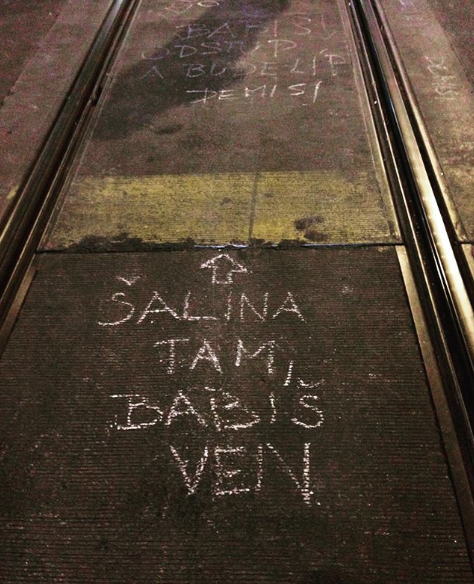 BABIŠI
ODSTUP
A BUDE LÍP
DEMISI
ŠALINA
TAM,
BABIŠ
VEN